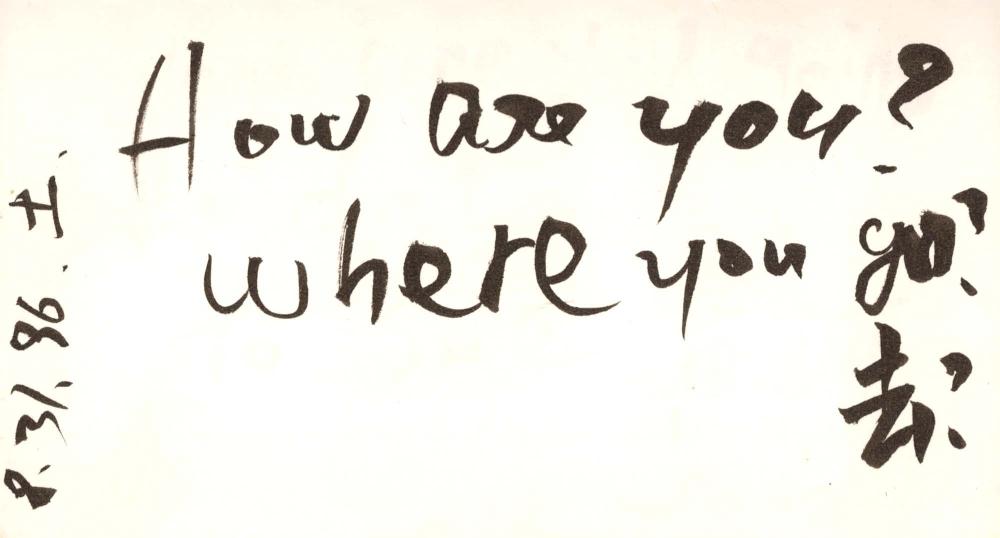 How are you?
where you go?
去?
8. 31. 86.